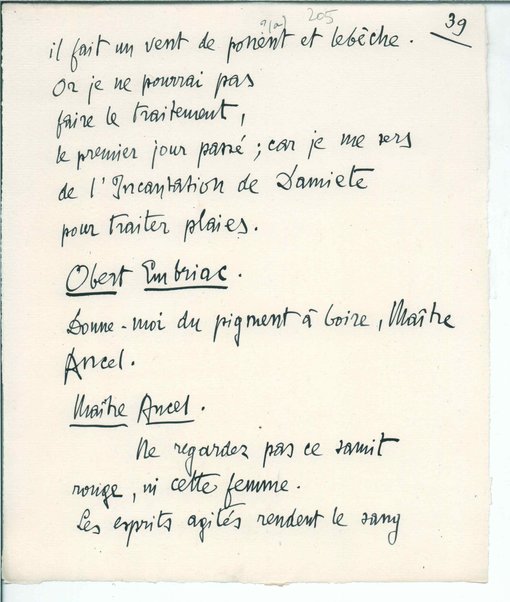 205
39
il fait un vent de ponent et lebêche.
Or je ne pourrai pas
faire le traitement,
le premier jour passé ; car je me sers
de l'Incantation de Damiete
pour traiter plaies.
Obert Embriac.
Donne-moi du pigment à boire, Maître
Ancel.
Maître Ancel.
Ne regardez pas ce samit
rouge, ni cette femme.
Les esprits agités rendent le sang